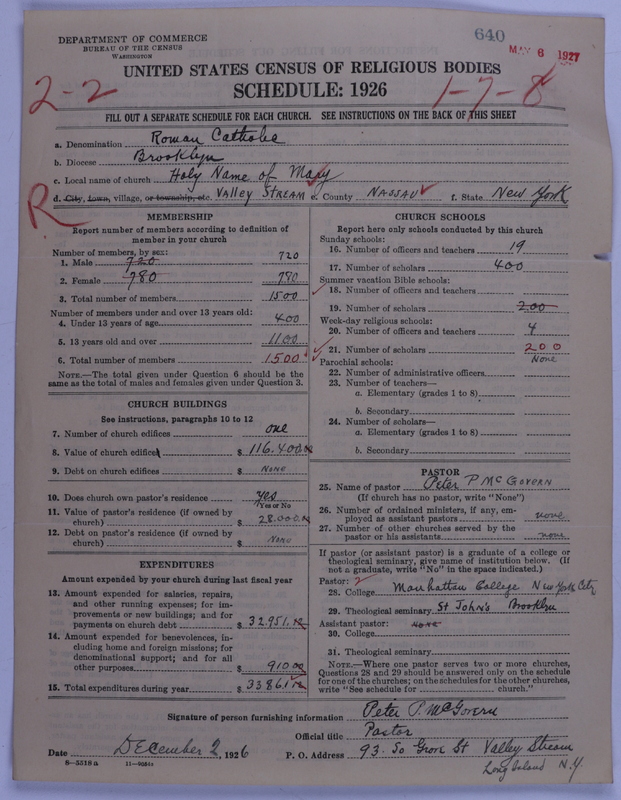 DEPARTMENT OF COMMERCE
BUREAU OF THE CENSUS
WASHINGTON
640
MAY 6 1927
UNITED STATES CENSUS OF RELIGIOUS BODIES
SCHEDULE: 1926
2-2
1-7-8
FILL OUT A SEPARATE SCHEDULE FOR EACH CHURCH. SEE INSTRUCTIONS ON THE BACK OF THIS SHEET
a. Denomination Roman Catholic
b. Diocese Brooklyn
c. Local name of church Holy Name of Mary
d. City, town, village, or township, etc. Valley Stream e. County Nassau f. State New York
R
MEMBERSHIP
Report number of members according to definition of
member in your church
Number of members, by sex:
1. Male 720 720
2. Female 780 780
3. Total number of members 1500
Number of members under and over 13 years old:
4. Under 13 years of age 400
5. 13 years old and over 1100
6. Total number of members 1500
NOTE.—The total given under Question 6 should be the
same as the total of males and females given under Question 3.
CHURCH BUILDINGS
See instructions, paragraphs 10 to 12
7. Number of church edifices one
8. Value of church edifices $ 116.400
9. Debt on church edifices $ None
10. Does church own pastor's residence yes
Yes or No
11. Value of pastor's residence (if owned by
church) $ 28.000
12. Debt on pastor's residence (if owned by
church) $ None
EXPENDITURES
Amount expended by your church during last fiscal year
13. Amount expended for salaries, repairs,
and other running expenses; for im-
provements or new buildings; and for
payments on church debt $ 32951.12
14. Amount expended for benevolences, in-
cluding home and foreign missions; for
denominational support; and for all
other purposes $ 910.00
15. Total expenditures during year $ 33861.12
CHURCH SCHOOLS
Report here only schools conducted by this church
Sunday schools:
16. Number of officers and teachers 19
17. Number of scholars 400
Summer vacation Bible schools:
18. Number of officers and teachers
19. Number of scholars 200
Week-day religious schools:
20. Number of officers and teachers 4
21. Number of scholars 200
Parochial schools: None
22. Number of administrative officers
23. Number of teachers—
a. Elementary (grades 1 to 8)
b. Secondary
24. Number of scholars—
a. Elementary (grades 1 to 8)
b. Secondary
PASTOR
25. Name of pastor Peter P McGovern
(If church has no pastor, write "None")
26. Number of ordained ministers, if any, em-
ployed as assistant pastors none
27. Number of other churches served by the
pastor or his assistants none
If pastor (or assistant pastor) is a graduate of a college or
theological seminary, give name of institution below. (If
not a graduate, write "No" in the space indicated.)
Pastor: 2
28. College Manhattan College New York City
29. Theological seminary St John's Brooklyn
Assistant pastor: None
30. College
31. Theological seminary
NOTE.—Where one pastor serves two or more churches,
Questions 28 and 29 should be answered only on the schedule
for one of the churches; on the schedules for the other churches,
write "See schedule for church."
Signature of person furnishing information Peter P. McGovern
Official title Pastor
Date December 2, 1926 P. O. Address 93. So Grove St Valley Stream
Long Island N.Y
8—5518 a